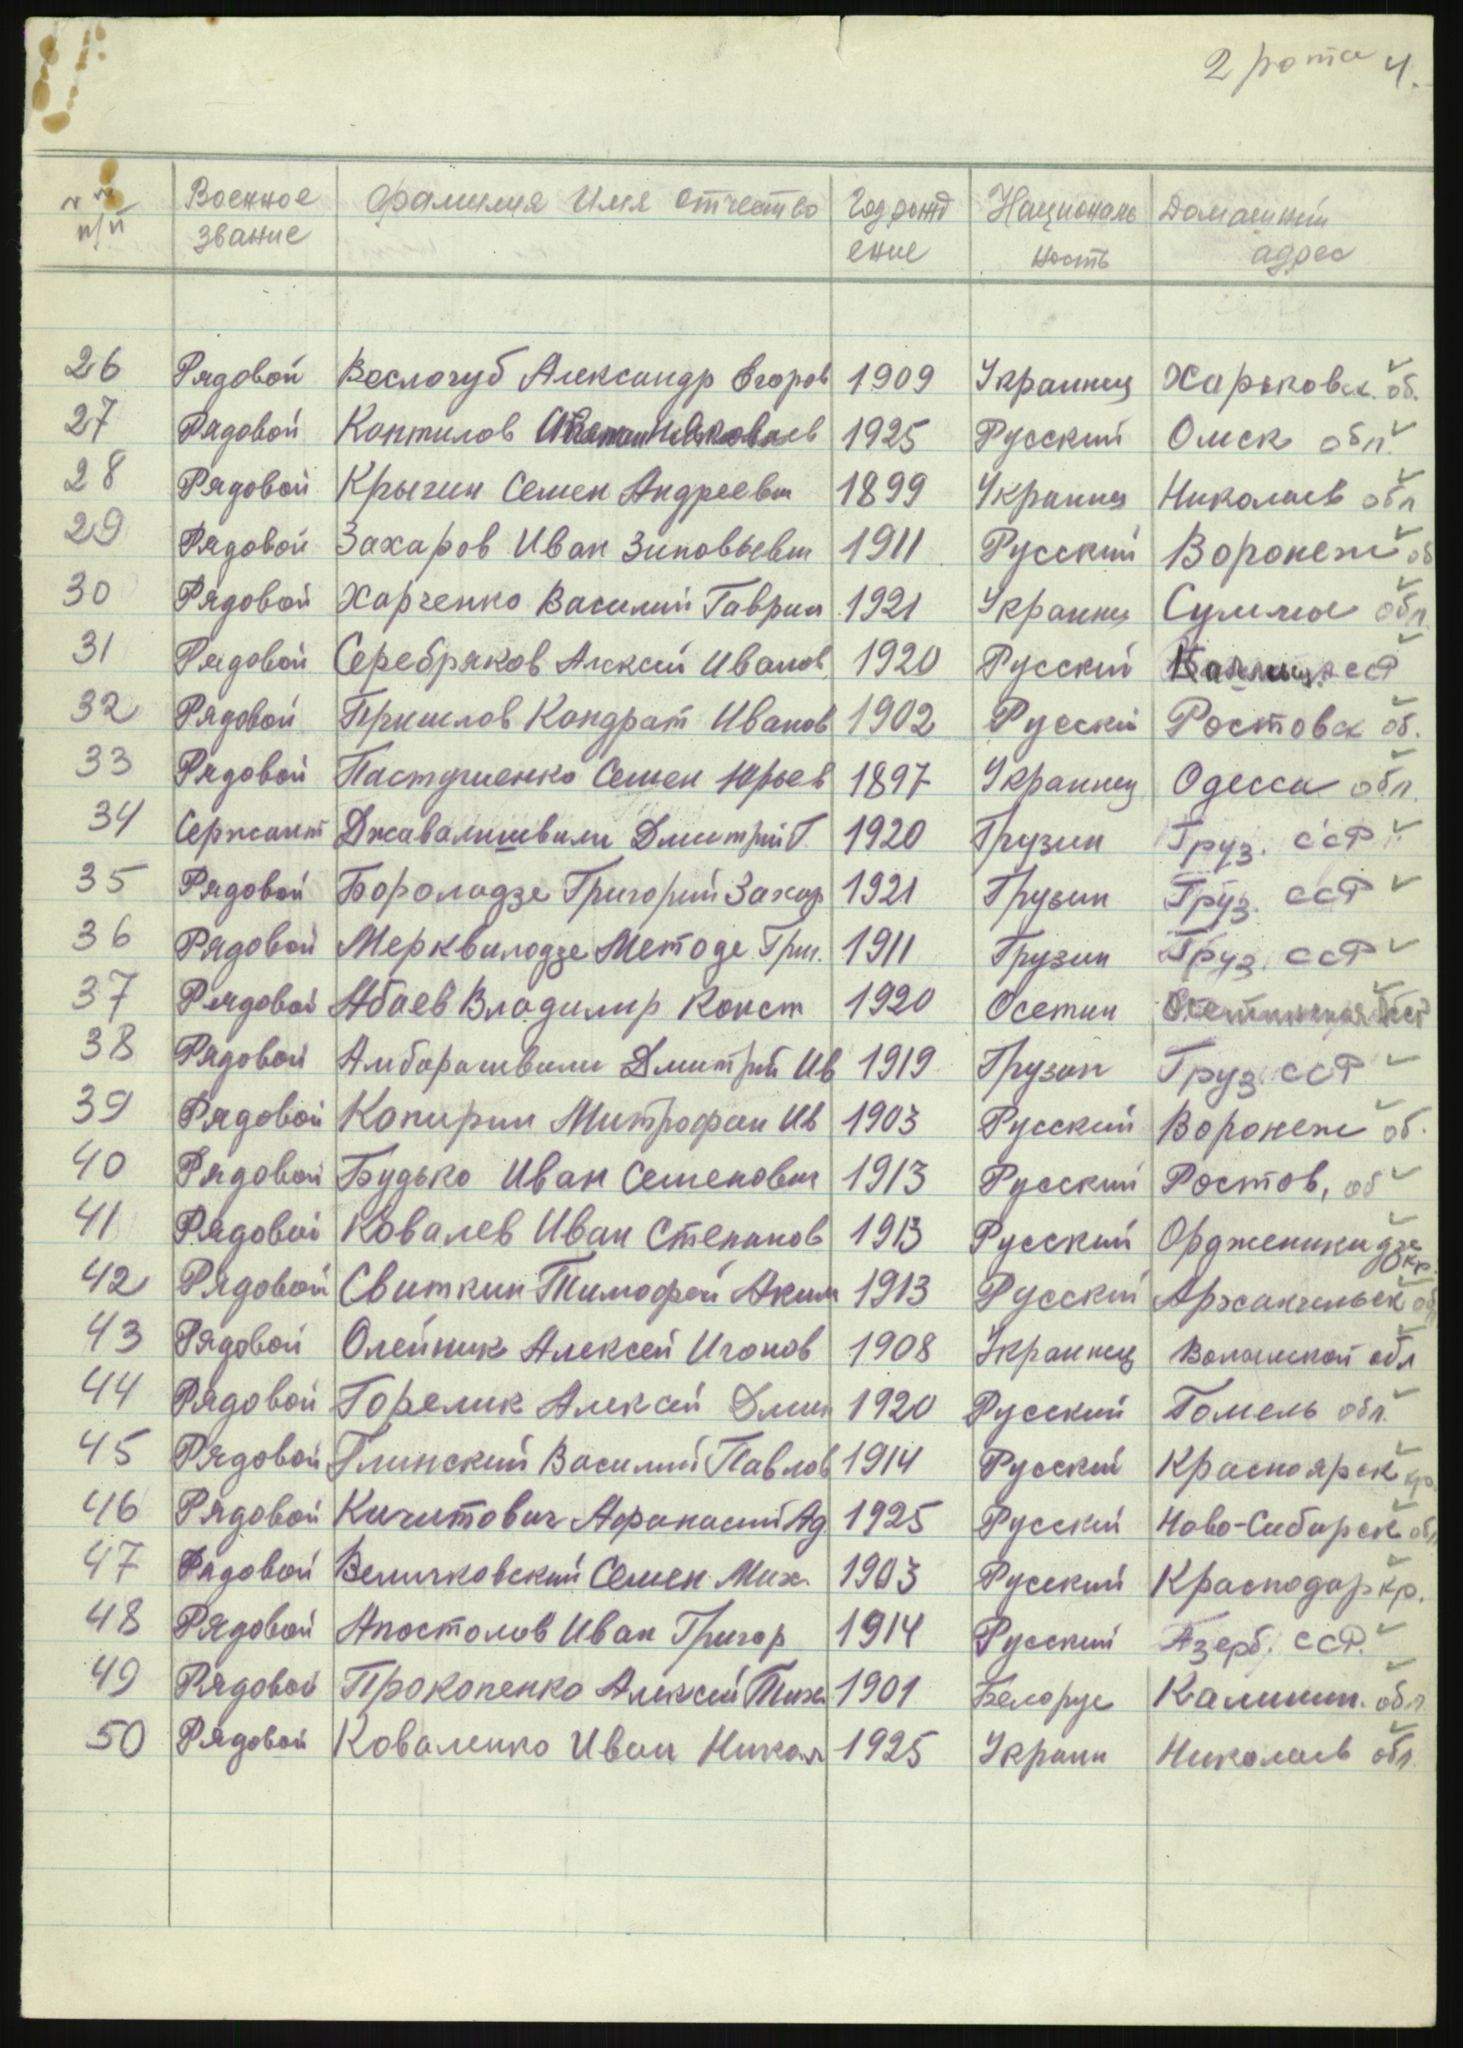 2 рота 4.
№№ п/п Военное звание Фамилия Имя Отчество Год рождение Национальность Домашний адрес
26 Рядовой Вослогуб Александр Егоров 1909 Украинец Харьковск. об.
27 Рядовой Коптилов 1925 Русский Омск обл.
28 Рядовой Крыгин Семен Андреевич 1899 Украинц Николаев обл
29 Рядовой Захаров Иван Зиновьевич 1911 Русский Воронеж об
30 Рядовой Харченко Василий Гаврил 1921 Украинц Суммы обл.
31 Рядовой Серебряков Алексей Иванов. 1920 Русский ССР
32 Рядовой Пришлов Кондрат Иванов 1902 Русский Ростовск об.
33 Рядовой Пастушенко Семен Юрьев 1897 Украинец Одесса обл.
34 Сержант Джавалишвили Дмитрий Г. 1920 Грузин Груз. ССР
35 Рядовой Бороладзе Григорий Захар 1921 Грузин Груз. ССР
36 Рядовой Мерквиладзе Методе Григ. 1911 Грузин Груз. ССР
37 Рядовой Абаев Владимир Конст 1920 Осетин
38 Рядовой Амборашвили Дмитрий Ив 1919 Грузин Груз ССР
39 Рядовой Копирин Митрофан Ив 1903 Русский Воронеж об.
40 Рядовой Будько Иван Семенович 1913 Русский Ростов, об
41 Рядовой Ковалев Иван Степанов 1913 Русский Орджоникидзе кр.
42 Рядовой Свиткин Тимофей Аким 1913 Русский Архангельск об
43 Рядовой Олейник Алексей Игонов 1908 Украинец обл
44 Рядовой Горелик Алексей Дмит 1920 Русский Гомель обл.
45 Рядовой Глинский Василий Павлов 1914 Русский Красноярск кр.
46 Рядовой Кичитович Афанасий Ад 1925 Русский Ново-Сибирск обл
47 Рядовой Величковский Семен Мих. 1903 Русский Краснодар кр.
48 Рядовой Апостолов Иван Григор 1914 Русский Азерб. ССР.
49 Рядовой Прокопенко Алексей Тихон 1901 Белорус Калинин. обл
50 Рядовой Коваленко Иван Никол 1925 Украин Николаев обл.